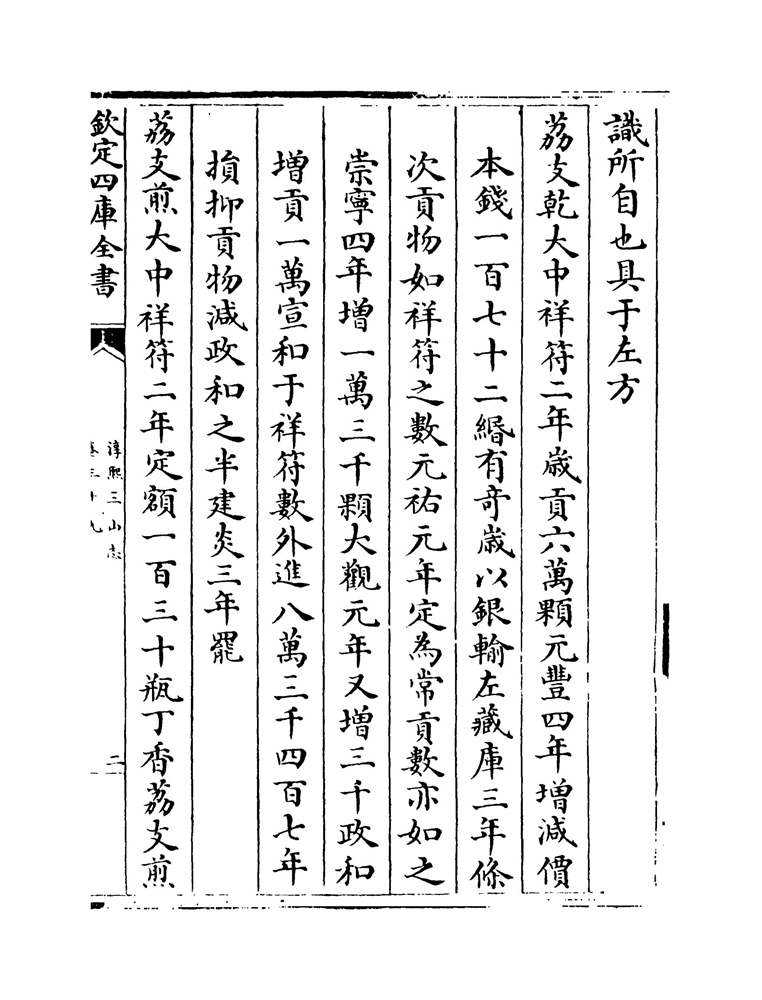 識所自也具于左方
荔支乾大中祥符二年歳貢六萬顆元豐四年增減價
本錢一百七十二緡有竒歳以銀輸左藏庫三年條
次貢物如祥符之數元祐元年定為常貢數亦如之
崇寧四年增一萬三千顆大觀元年又增三千政和
增貢一萬宣和于祥符數外進八萬三千四百七年
損抑貢物減政和之半建炎三年罷
荔支煎大中祥符二年定額一百三十瓶丁香荔支煎
欽定四庫全書
淳熙三山志
卷三十九
二